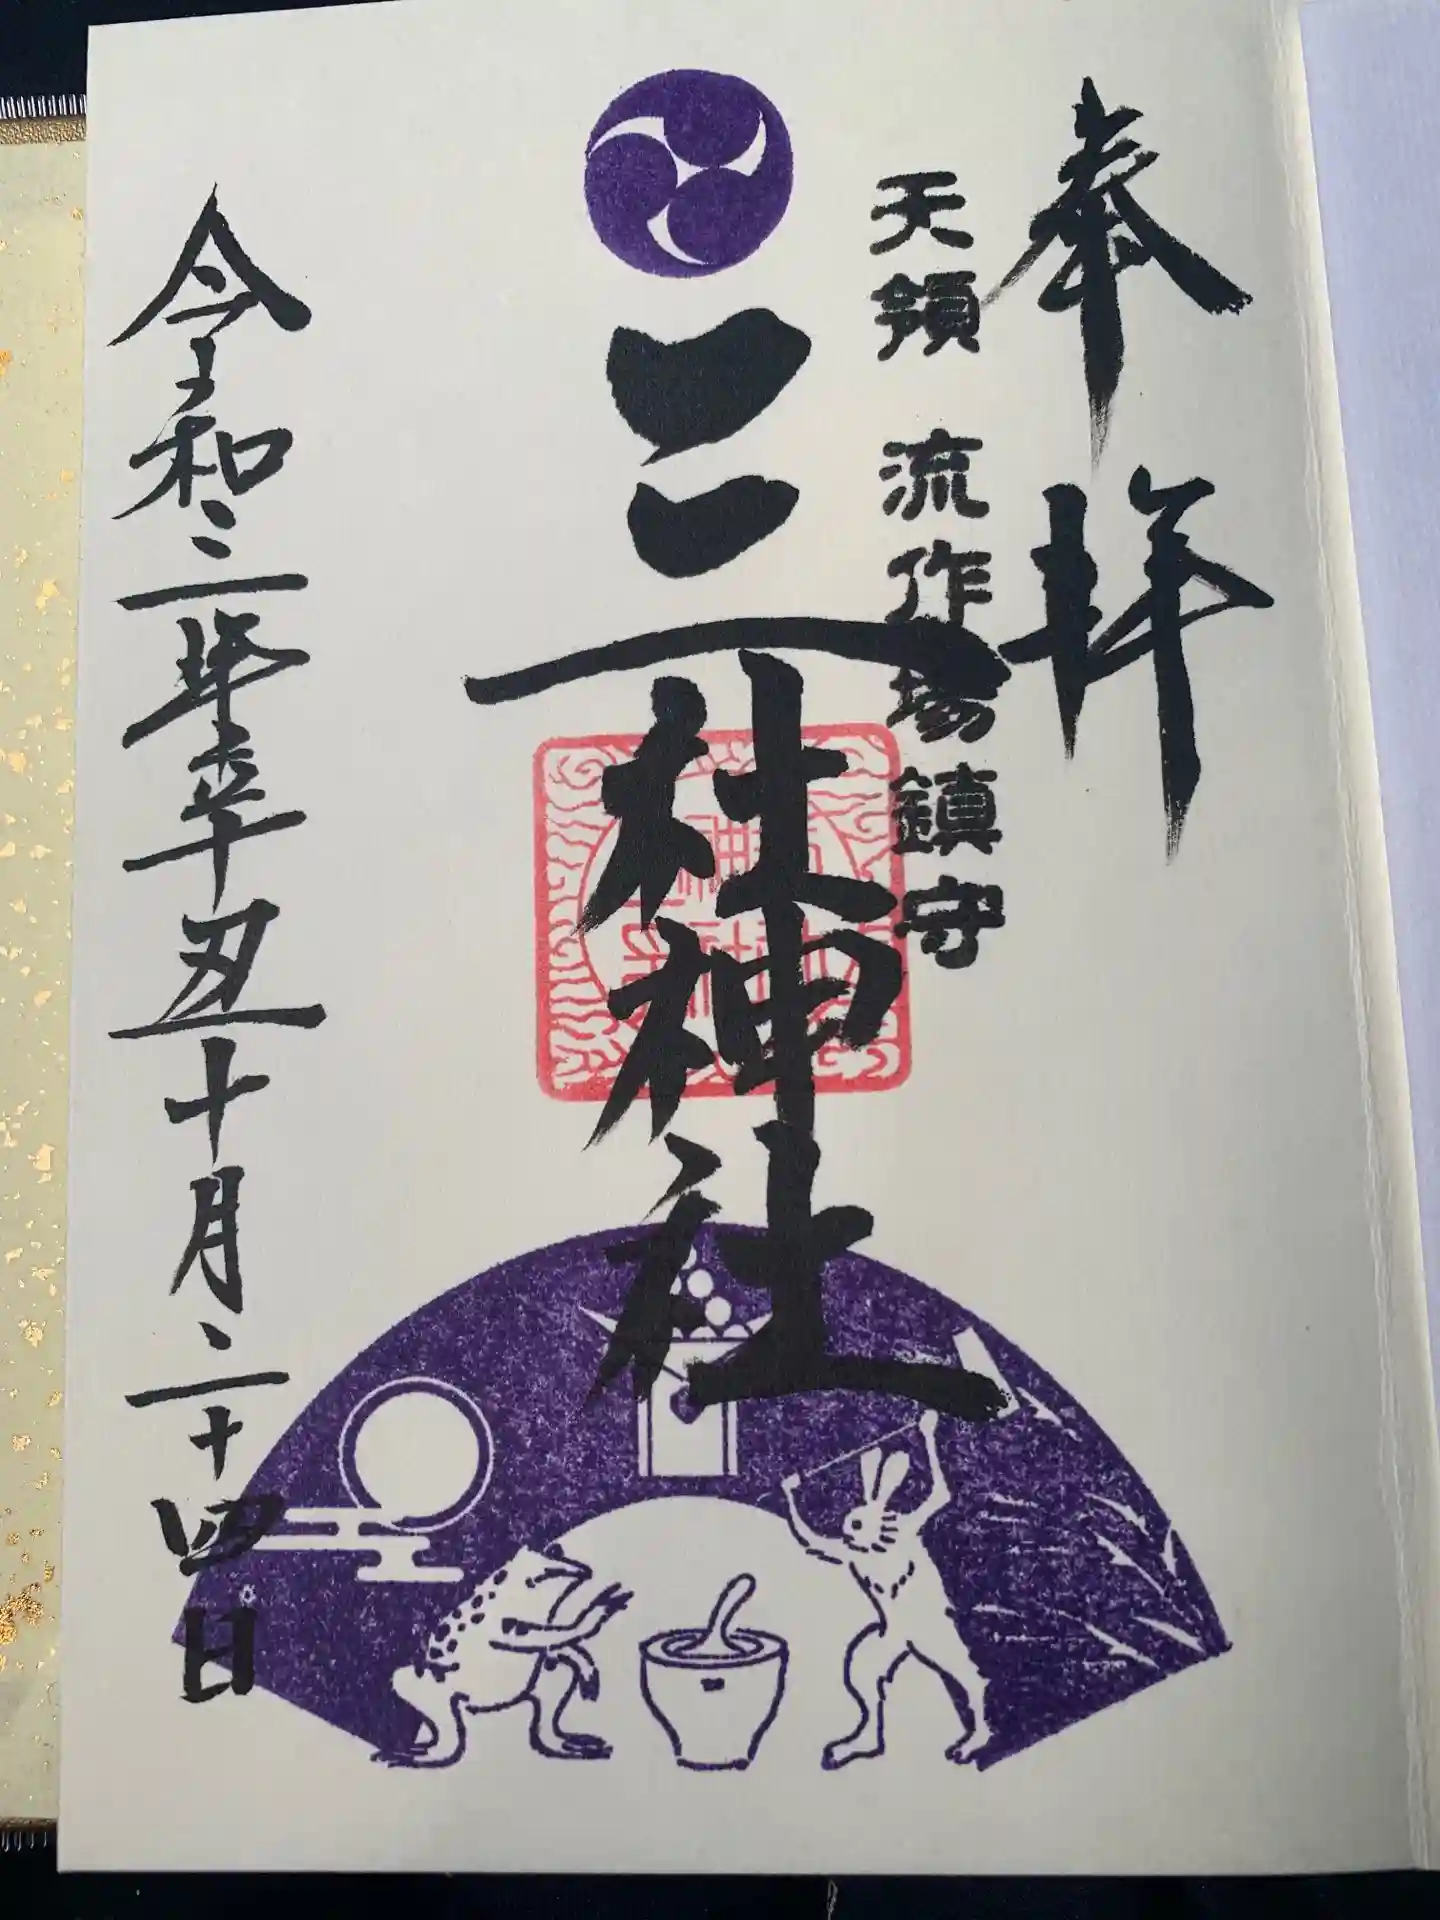 奉拝
天領 流作場鎮守
三社神社
令和三年辛丑十月二十四日